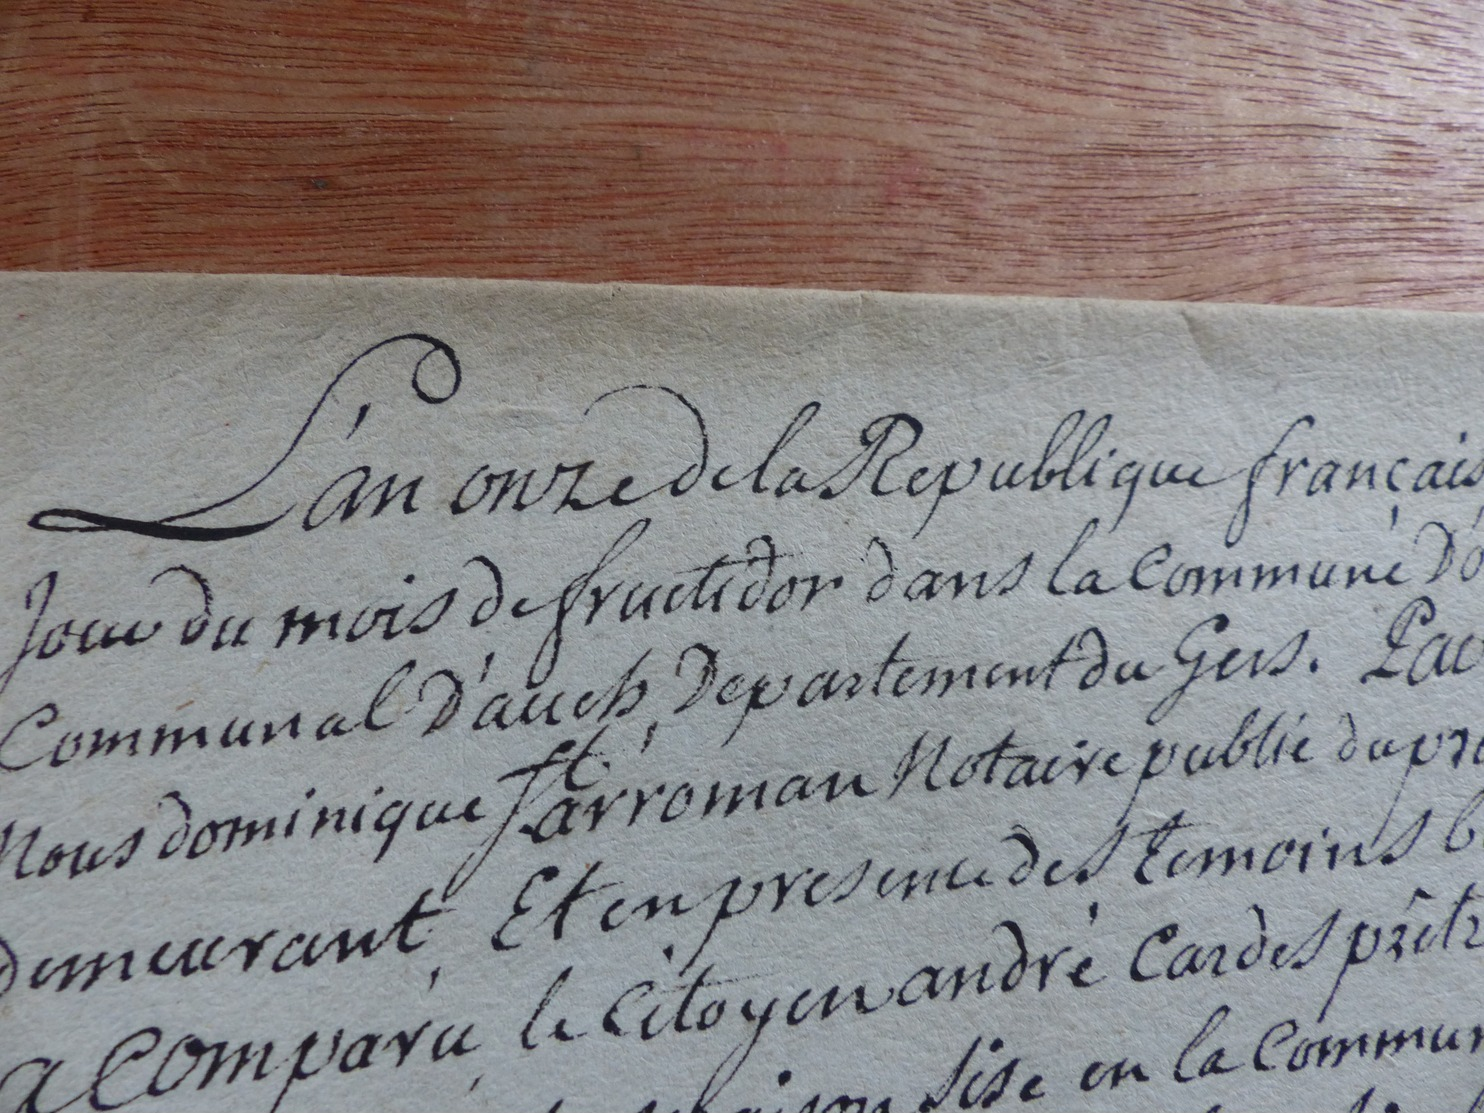 L'an onze de la Republique français
Jour du mois de fructidor dans la Commune D'o
Communal D'auch, Departement du Gers. Par
Nous dominique Larroman Notaire public du pr
Demeurant, Et en presence des temoins b
a Comparu le Citoyen andré Cardes prêtr
maison sise en la Commun